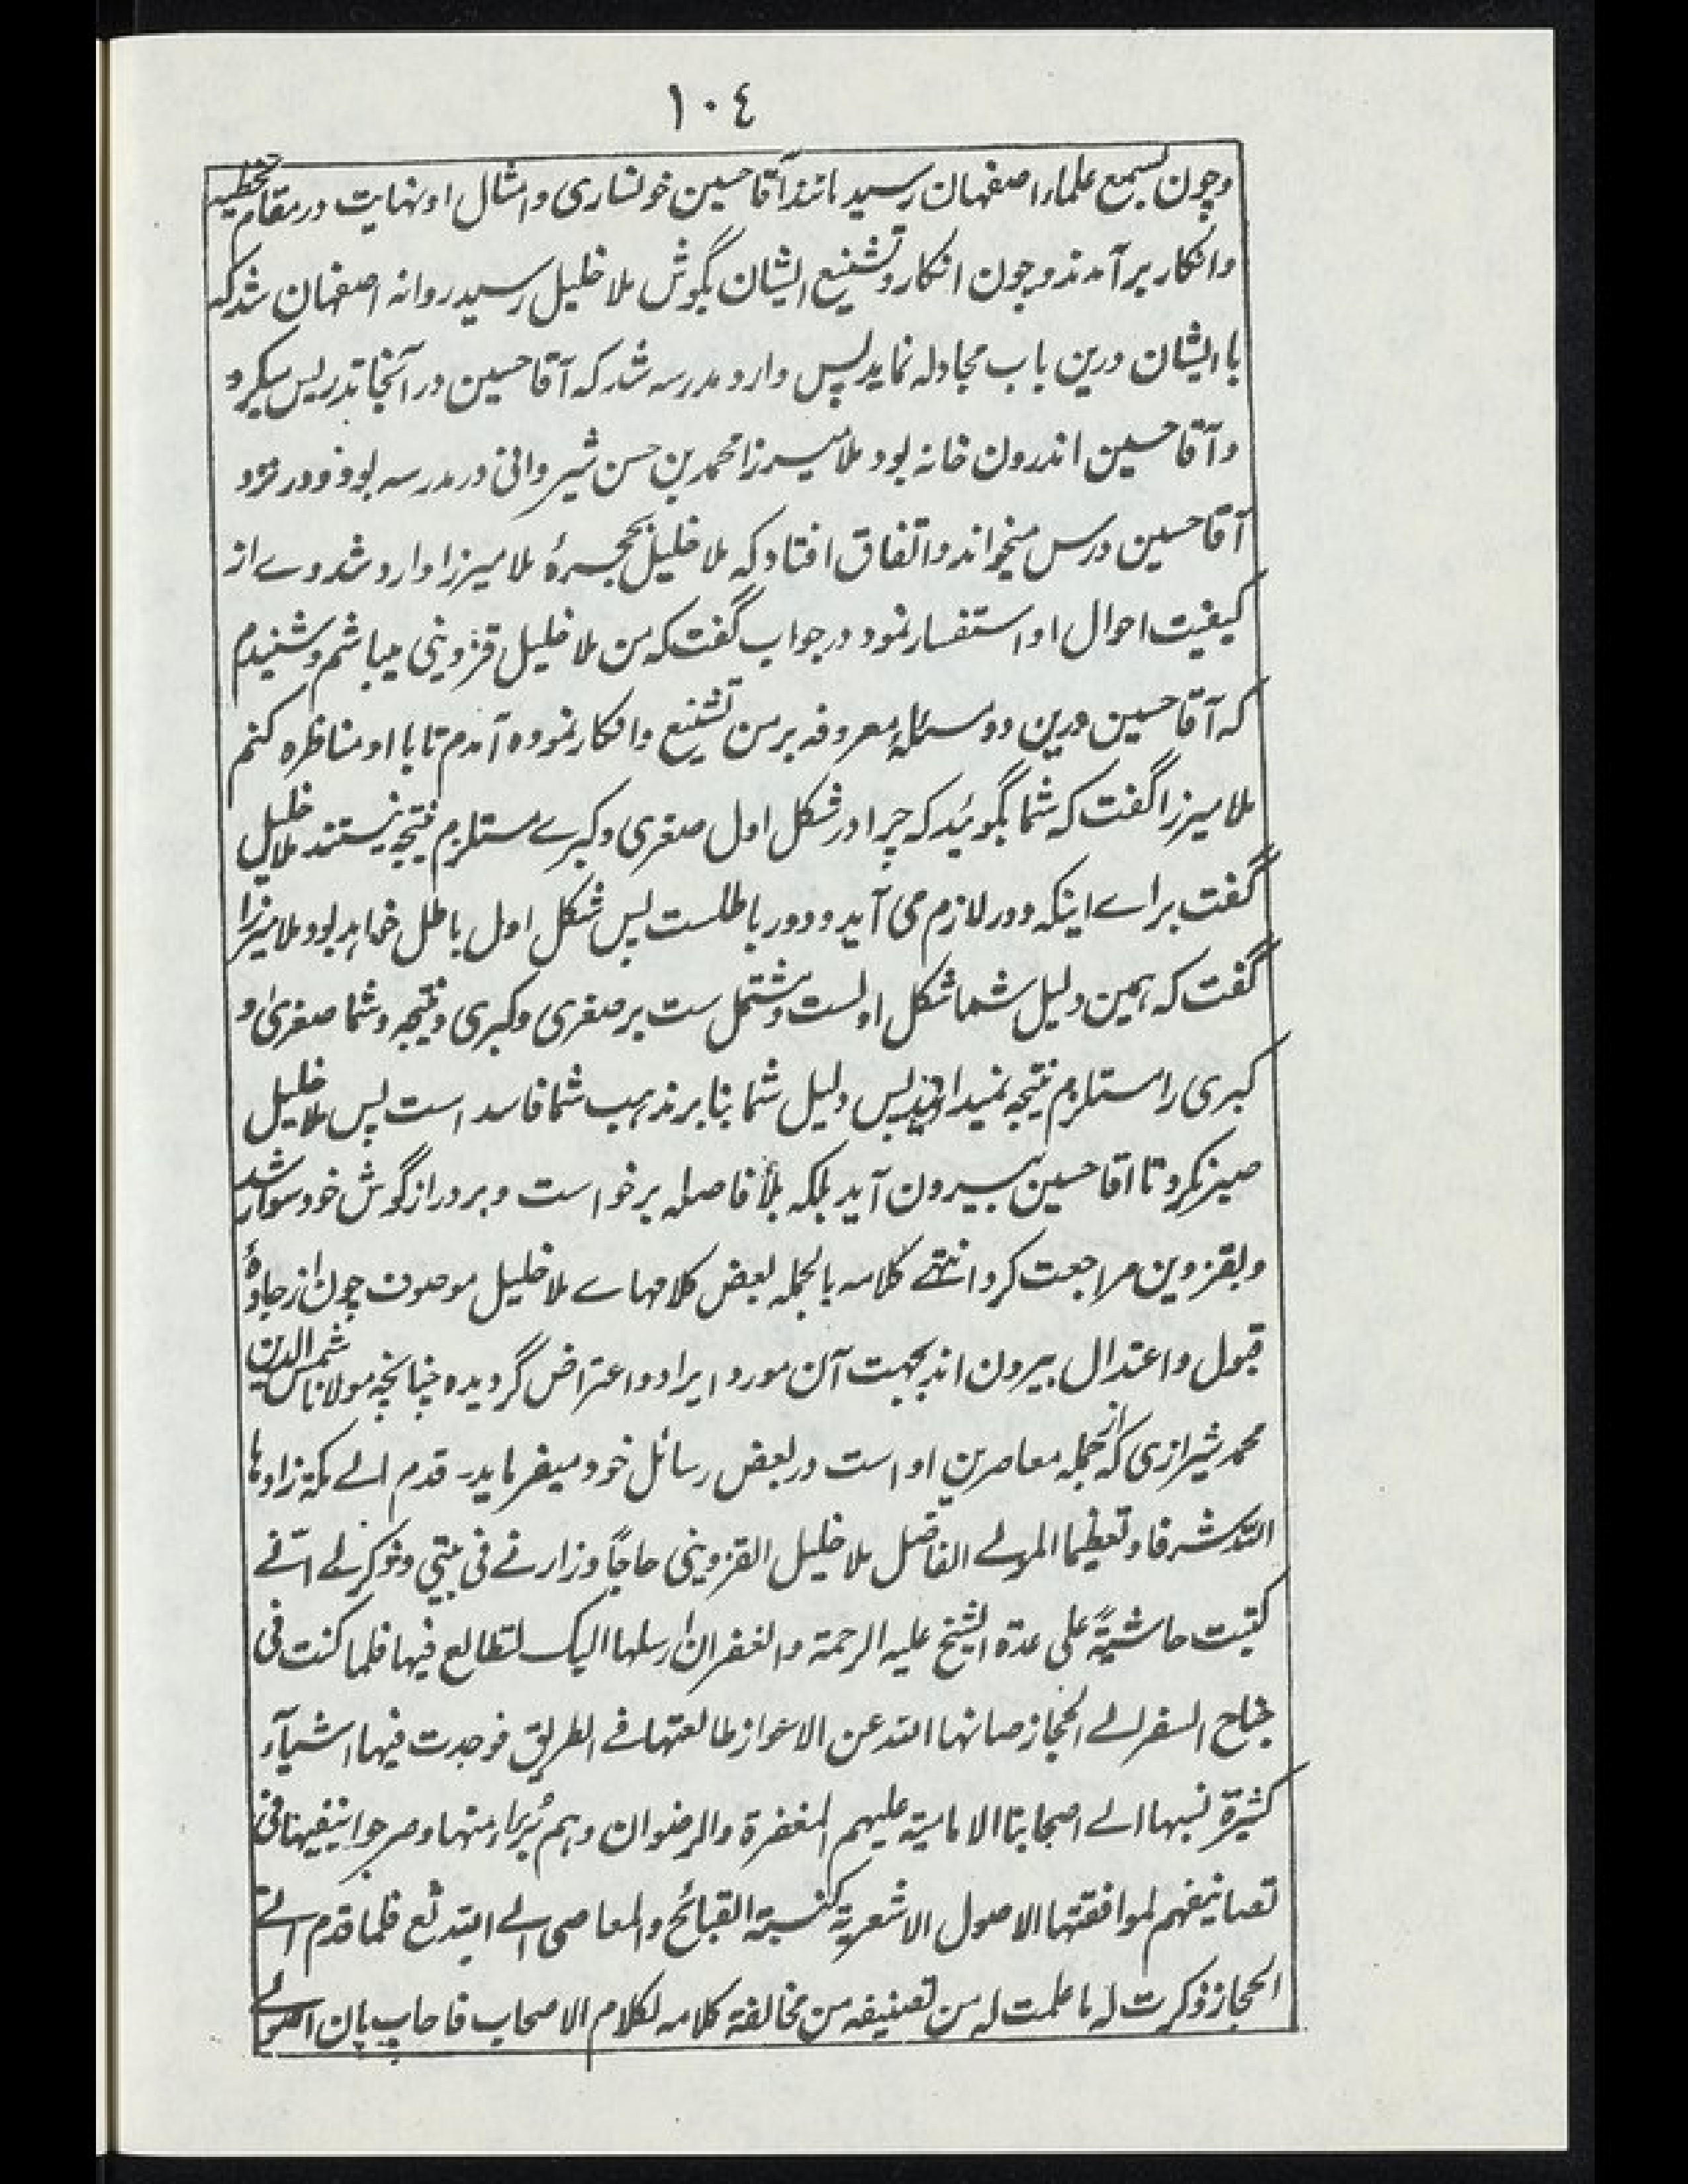 ١٠٤
وچون بسمع علماء اصفهان رسید مانند آقا حسین خونساری وامثال او نهایت در مقام تخطیه
وانکار برآمدند وچون انکار وتشنیع ایشان بگوش ملا خلیل رسید روانه اصفهان شد که
با ایشان درین باب مجادله نماید پس وارد مدرسه شد که آقا حسین در آنجا تدریس میکرد
وآقا حسین اندرون خانه بود ملا میرزا محمد بن حسن شیروانی در مدرسه بود ودر نزد
آقا حسین درس میخواند واتفاق افتاد که ملا خلیل بحجرهٔ ملا میرزا وارد شد وے از
کیفیت احوال او استفسار نمود در جواب گفت که من ملا خلیل قزوینی میباشم وشنیدم
که آقا حسین درین دو مسئلهٔ معروفه بر من تشنیع وانکار نموده آمدم تا با او مناظره کنم
ملا میرزا گفت که شما بگوئید که چرا در شکل اول صغری وکبرے مستلزم نتیجه نیستند ملا خلیل
گفت براے اینکه دور لازم می آید ودور باطلست پس شکل اول باطل خواهد بود ملا میرزا
گفت که همین دلیل شما شکل اولست ومشتمل ست بر صغری وکبری ونتیجه وشما صغریٰ و
کبری را مستلزم نتیجه نمیدانید پس دلیل شما بنا بر مذهب شما فاسد است پس ملا خلیل
صبر نکرد تا آقا حسین بیرون آید بلکه بلا فاصله برخواست وبر درازگوش خود سوار شد
وبقزوین مراجعت کرد انتهے کلامه بالجمله بعض کلامهاے ملا خلیل موصوف چون از جادهٔ
قبول واعتدال بیرون اند بجهت آن مورد ایراد واعتراض گردیده چنانچه مولانا شمس الدین
محمد شیرازی که از جمله معاصرین او است در بعض رسائل خود میفرماید- قدم الے مکة زادها
الله شرفا وتعظیما المولے الفاضل ملا خلیل القزوینی حاجًا وزارنے فی بیتی وذکر لے انّے
کتبت حاشیةً علی عدة الشیخ علیه الرحمة والغفران ارسلها الیک لتطالع فیها فلما کنت فی
جناح السفر الے الحجاز صانها الله عن الاعواز طالعتها فے الطریق فوجدت فیها اشیآء
کثیرة نسبها الے اصحابنا الامامیة علیهم المغفرة والرضوان وهم بُرَآء منها وصرحوا بنفیها فی
تصانیفهم لموافقتها الاصول الاشعریة کنسبة القبائح والمعاصی الے الله تع فلما قدم الے
الحجاز ذکرت له ما علمت له من تصنیفه من مخالفة کلامه لکلام الاصحاب فاجاب بان